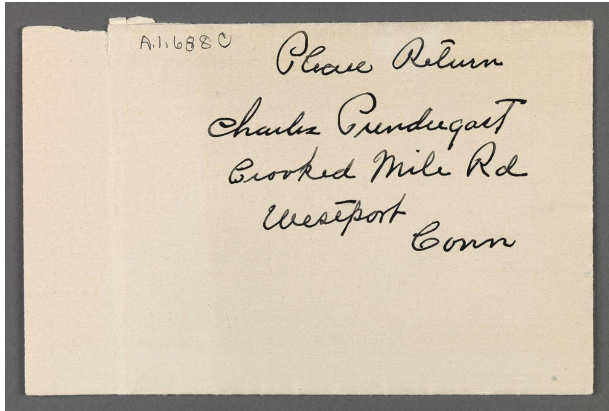 A.1.688C
Please Return
Charles Prendergast
Crooked Mile Rd
Westport
Conn